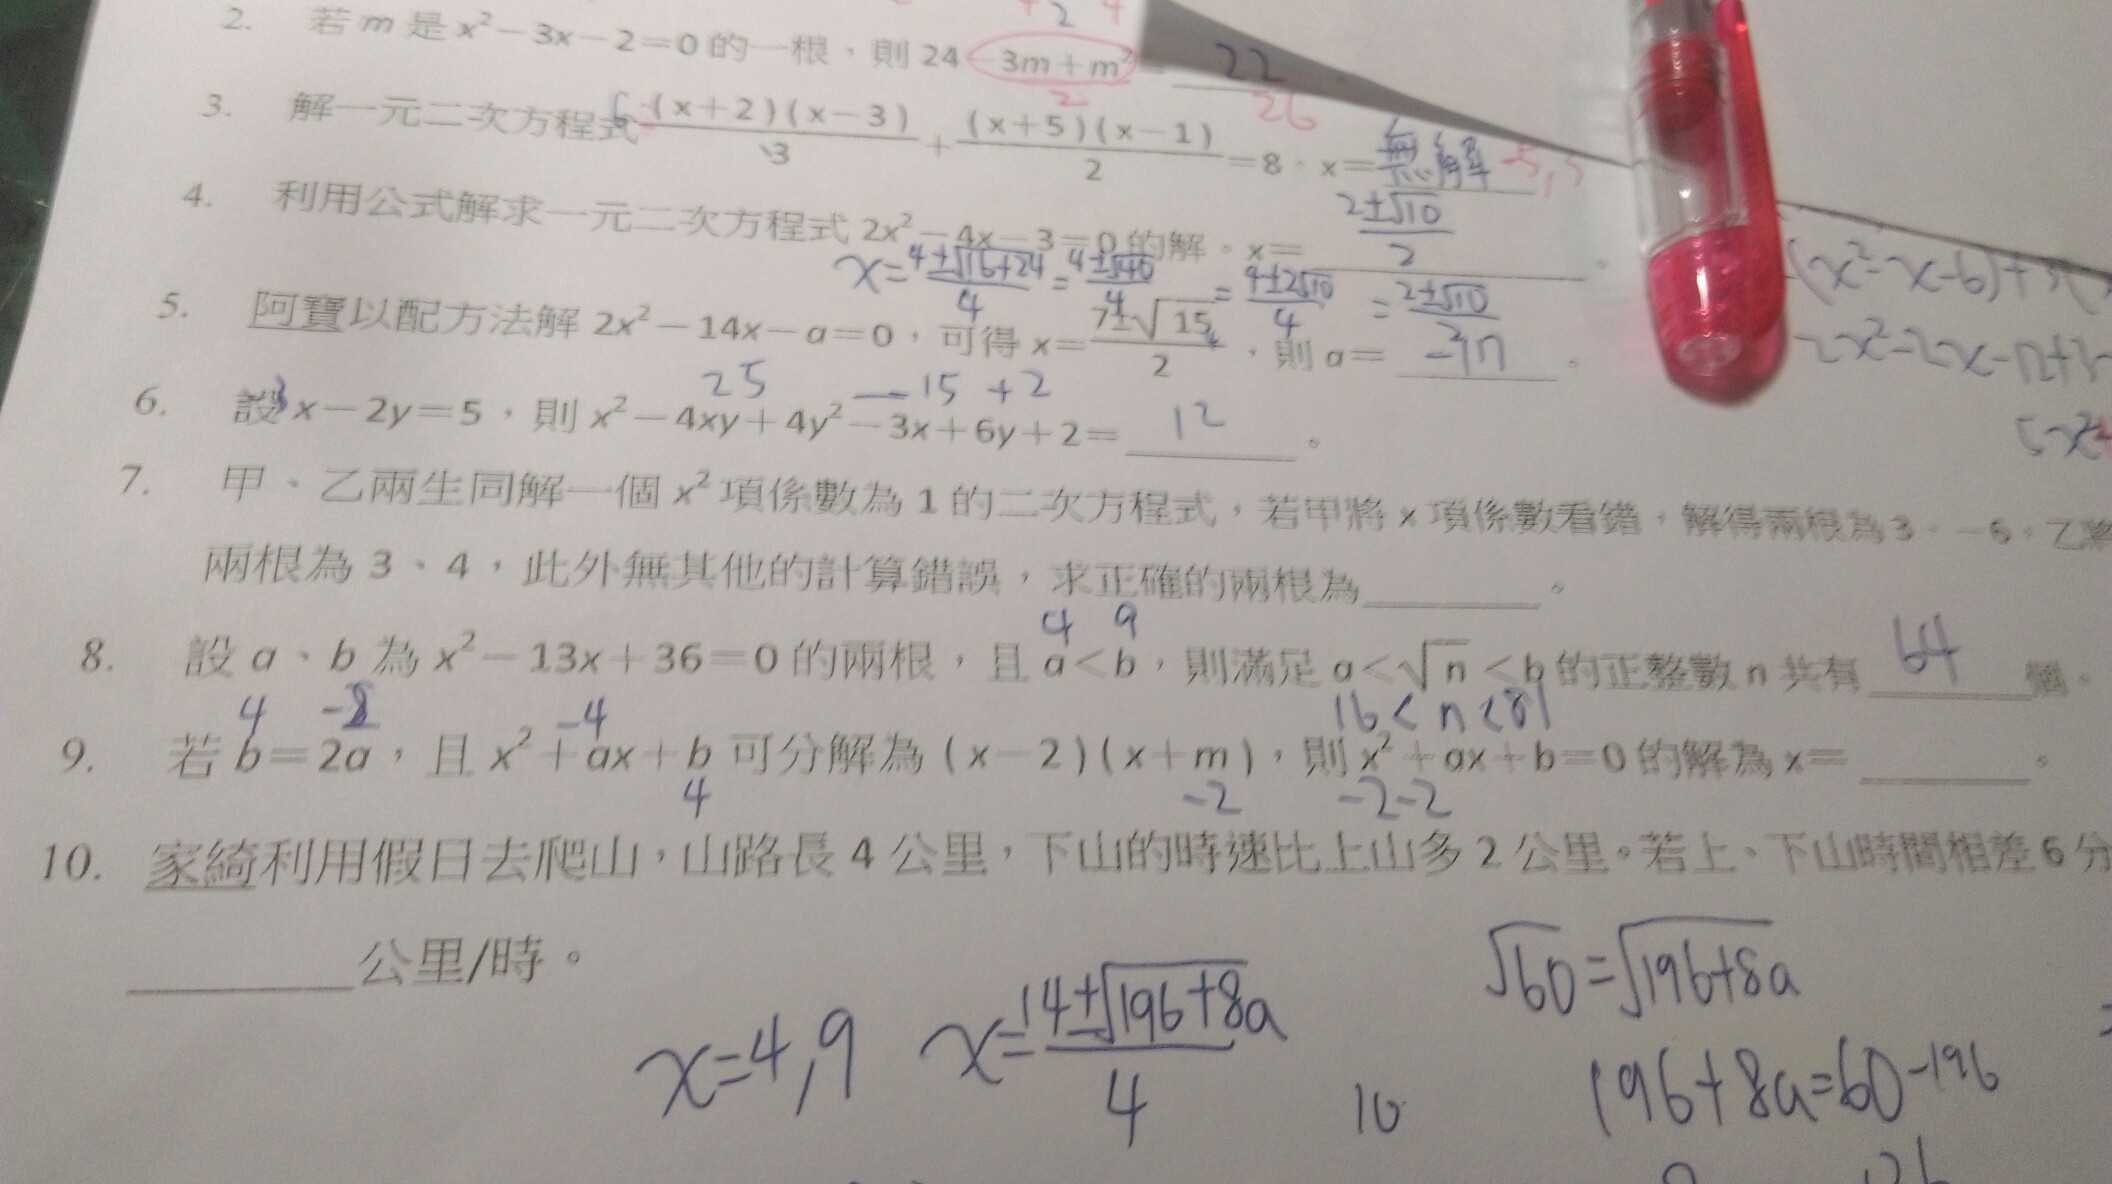 2. 若 m 是 x²－3x－2＝0 的一根，則 24－3m＋m²＝ 22
2 26
3. 解一元二次方程式 (x＋2)(x－3)/3 ＋ (x＋5)(x－1)/2 ＝8，x＝無解
4. 利用公式解求一元二次方程式 2x²－4x－3＝0 的解。x＝ (2±√10)/2 。
x=(4±√16+24)/4 = (4±√40)/4 = (4±2√10)/4 = (2±√10)/2
5. 阿寶以配方法解 2x²－14x－a＝0，可得 x＝(7±√15)/2，則 a＝ 。
25 －15 +2
6. 設 x－2y＝5，則 x²－4xy＋4y²－3x＋6y＋2＝ 12 。
7. 甲、乙兩生同解一個 x² 項係數為 1 的二次方程式，若甲將 x 項係數看錯，解得兩根為 3、
兩根為 3、4，此外無其他的計算錯誤，求正確的兩根為 。
4 9
8. 設 a、b 為 x²－13x＋36＝0 的兩根，且 a＜b，則滿足 a＜√n＜b 的正整數 n 共有 64 個。
16<n<81
4 -4
9. 若 b＝2a，且 x²＋ax＋b 可分解為 (x－2)(x＋m)，則 x²＋ax＋b＝0 的解為 x＝ 。
4 -2 -2-2
10. 家綺利用假日去爬山，山路長 4 公里，下山的時速比上山多 2 公里。若上、下山時間相差 6 分
公里/時。
x=4,9 x=(14±√196+8a)/4
√60=√196+8a
196+8a=60-196
10
(x²-x-6)+3(
5x²